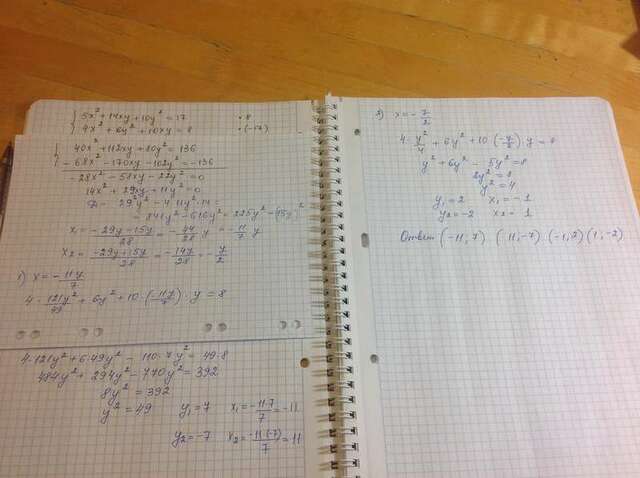 5x² + 14xy + 10y² = 17 · 8
4x² + 6y² + 10xy = 8 · (-17)
40x² + 112xy + 80y² = 136
-68x² - 170xy - 102y² = -136
-28x² - 58xy - 22y² = 0
14x² + 29xy + 11y² = 0
D = 29²y² - 4·11y²·14 =
= 841y² - 616y² = 225y² = (15y)²
x₁ = (-29y - 15y)/28 = -44/28 y = -11/7 y
x₂ = (-29y + 15y)/28 = -14y/28 = -y/2
1) x = -11y/7
4 · 121y²/49 + 6y² + 10 · (-11y/7) · y = 8
4·121y² + 6·49y² - 110·7y² = 49·8
484y² + 294y² - 770y² = 392
8y² = 392
y² = 49 y₁ = 7 x₁ = -11·7/7 = -11
y₂ = -7 x₂ = -11·(-7)/7 = 11
2) x = -y/2
4 · y²/4 + 6y² + 10 · (-y/2) · y = 8
y² + 6y² - 5y² = 8
2y² = 8
y² = 4
y₁ = 2 x₁ = -1
y₂ = -2 x₂ = 1
Ответ (-11; 7) (11; -7) (-1; 2) (1; -2)